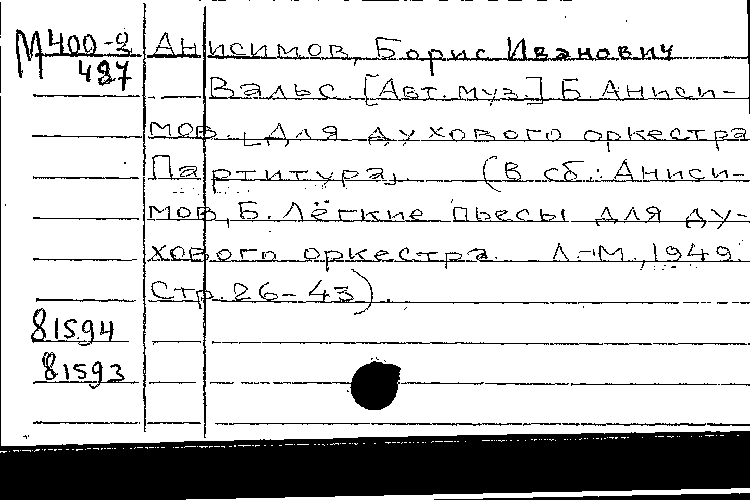 М 400-2 Анисимов, Борис Иванович
487 Вальс. [Авт. муз.] Б. Аниси-
мов. [Для духового оркестра
Партитура]. (В сб.: Аниси-
мов, Б. Лёгкие пьесы для ду-
хового оркестра. Л.-М., 1949.
Стр. 26-43).
81594
81593